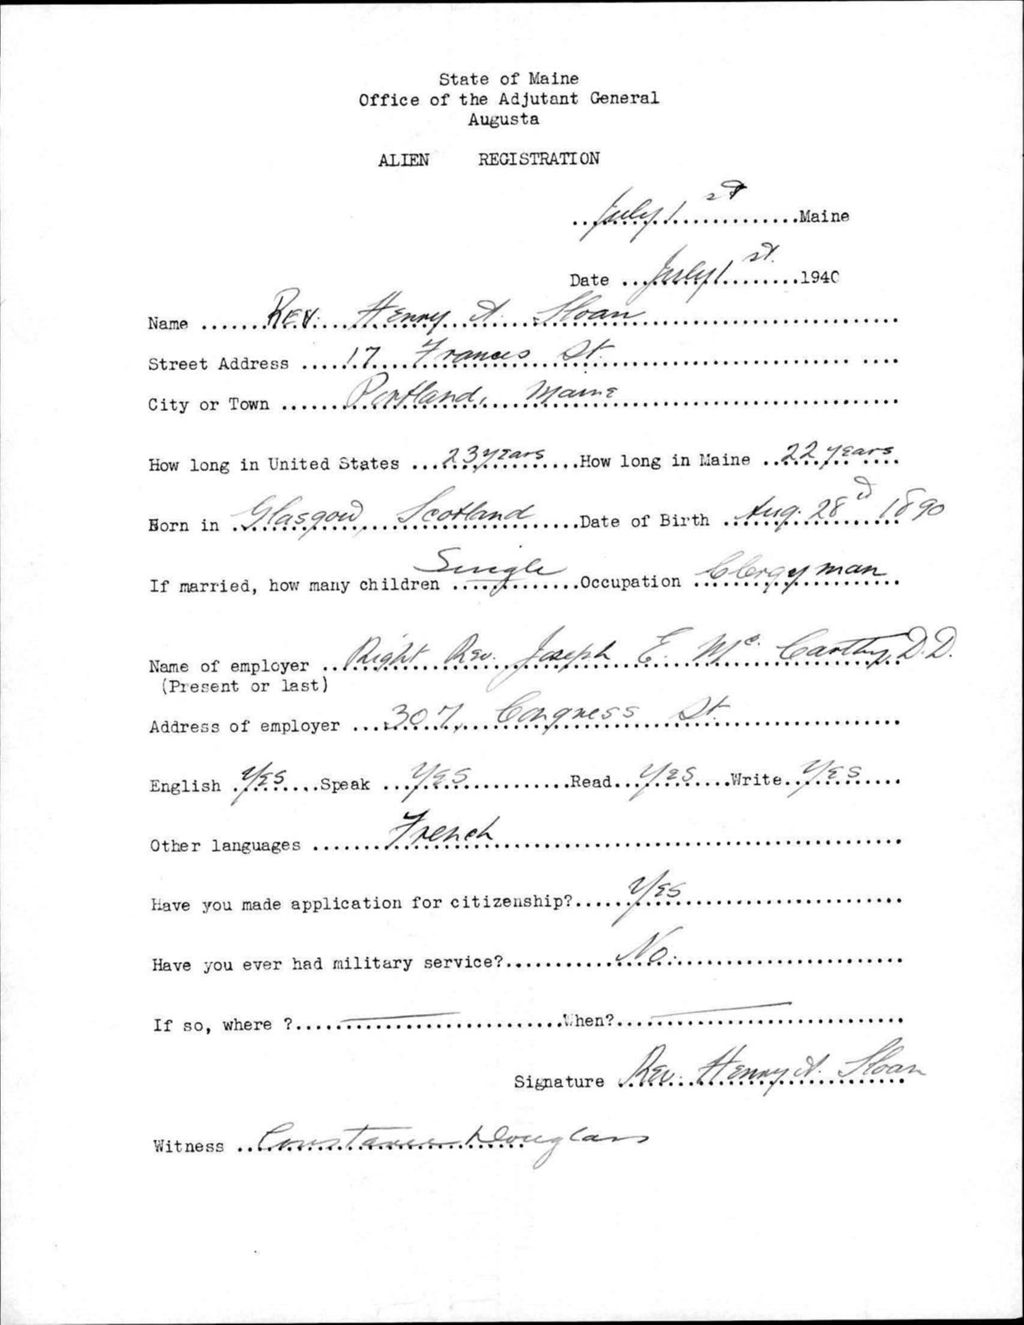 State of Maine
Office of the Adjutant General
Augusta
ALIEN REGISTRATION
July 1st Maine
Date July 1st 1940
Name Rev. Henry A. Sloan
Street Address 17 Frances St.
City or Town Portland, Maine
How long in United States 23 years How long in Maine 22 years
Born in Glasgow, Scotland Date of Birth Aug. 28d 1890
If married, how many children Single Occupation Clergyman
Name of employer Right Rev. Joseph E. Mc. Carthy, D.D.
(Present or last)
Address of employer 307, Congress St
English Yes Speak Yes Read Yes Write Yes
Other languages French
Have you made application for citizenship? Yes
Have you ever had military service? No.
If so, where ? When?
Signature Rev. Henry A. Sloan
Witness Constance Douglass